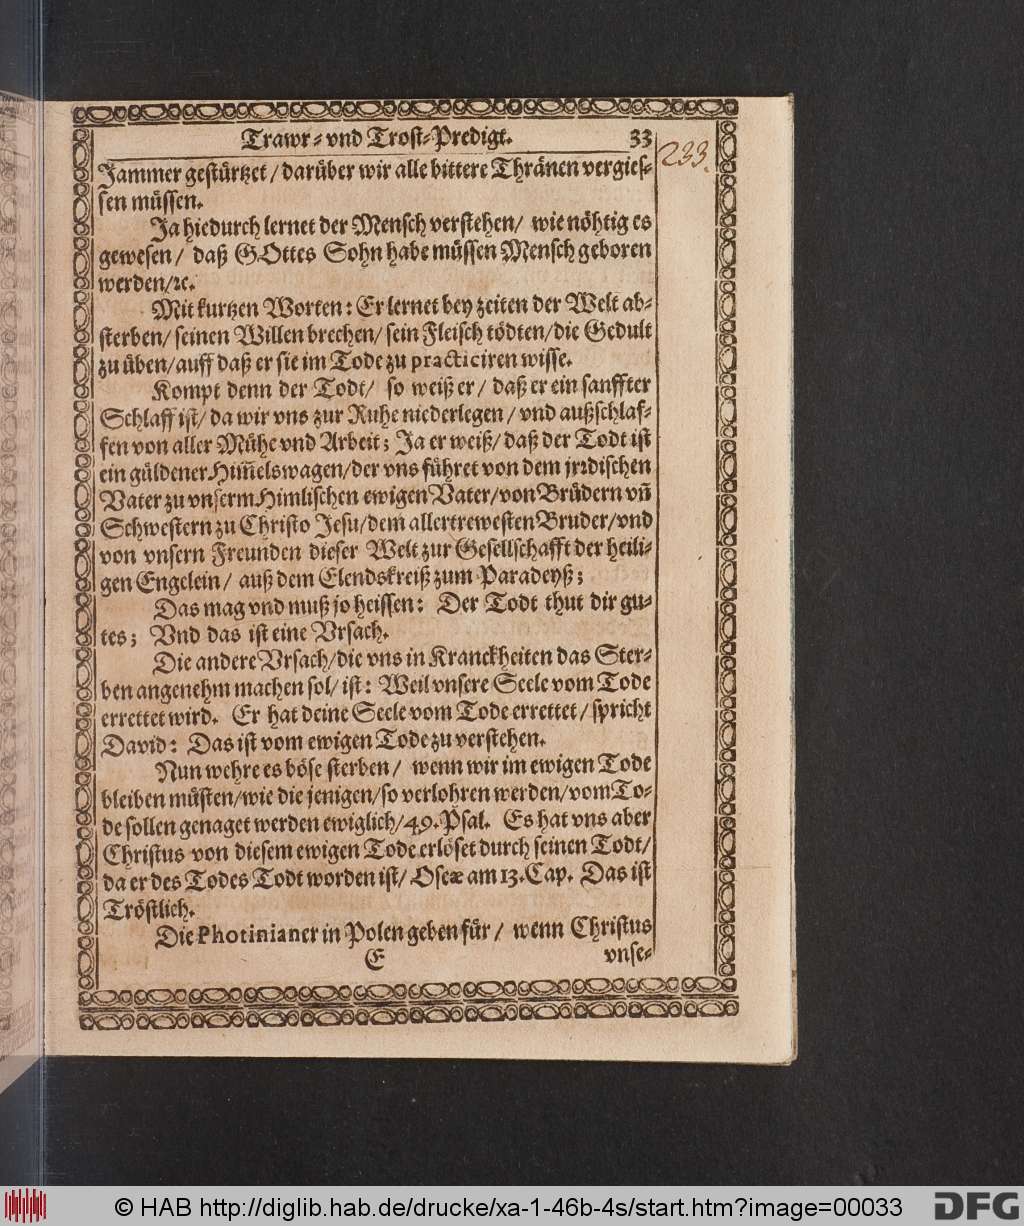 Trawr- vnd Trost-Predigt. 33
233.
Jammer gestürtzet / darüber wir alle bittere Thränen vergies-
sen müssen.
Ja hiedurch lernet der Mensch verstehen / wie nöhtig es
gewesen / daß GOttes Sohn habe müssen Mensch geboren
werden/ꝛc.
Mit kurtzen Worten: Er lernet bey zeiten der Welt ab-
sterben/ seinen Willen brechen/ sein Fleisch tödten/die Gedult
zu üben/auff daß er sie im Tode zu practiciren wisse.
Kompt denn der Todt/ so weiß er / daß er ein sanffter
Schlaff ist/ da wir vns zur Ruhe niederlegen / vnd außschlaf-
fen von aller Mühe vnd Arbeit; Ja er weiß/ daß der Todt ist
ein güldener Him̃elswagen/der vns führet von dem jrꝛdischen
Vater zu vnserm Himlischen ewigen Vater/von Brüdern vñ
Schwestern zu Christo Jesu/dem allertrewesten Bruder/vnd
von vnsern Freunden dieser Welt zur Gesellschafft der heili-
gen Engelein / auß dem Elendskreiß zum Paradeyß;
Das mag vnd muß jo heissen: Der Todt thut dir gu-
tes; Vnd das ist eine Vrsach.
Die andere Vrsach/die vns in Kranckheiten das Ster-
ben angenehm machen sol/ ist: Weil vnsere Seele vom Tode
errettet wird. Er hat deine Seele vom Tode errettet / spricht
David: Das ist vom ewigen Tode zu verstehen.
Nun wehre es böse sterben / wenn wir im ewigen Tode
bleiben müsten/wie die jenigen/so verlohren werden/vom To-
de sollen genaget werden ewiglich/49.Psal. Es hat vns aber
Christus von diesem ewigen Tode erlöset durch seinen Todt/
da er des Todes Todt worden ist/ Oseæ am 13.Cap. Das ist
Tröstlich.
Die Photinianer in Polen geben für / wenn Christus
E vnse-
© HAB http://diglib.hab.de/drucke/xa-1-46b-4s/start.htm?image=00033
DFG